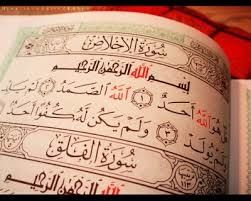 سُورَةُ الْإِخْلَاصِ
بِسْمِ اللَّهِ الرَّحْمَٰنِ الرَّحِيمِ
هُوَ اللَّهُ أَحَدٌ ١ اللَّهُ الصَّمَدُ ٢ لَمْ
يُولَدْ ٣ وَلَمْ يَكُن لَّهُ كُفُوًا أَحَدٌ
سُورَةُ الْفَلَقِ
اللَّهِ الرَّحْمَٰنِ الرَّحِيمِ